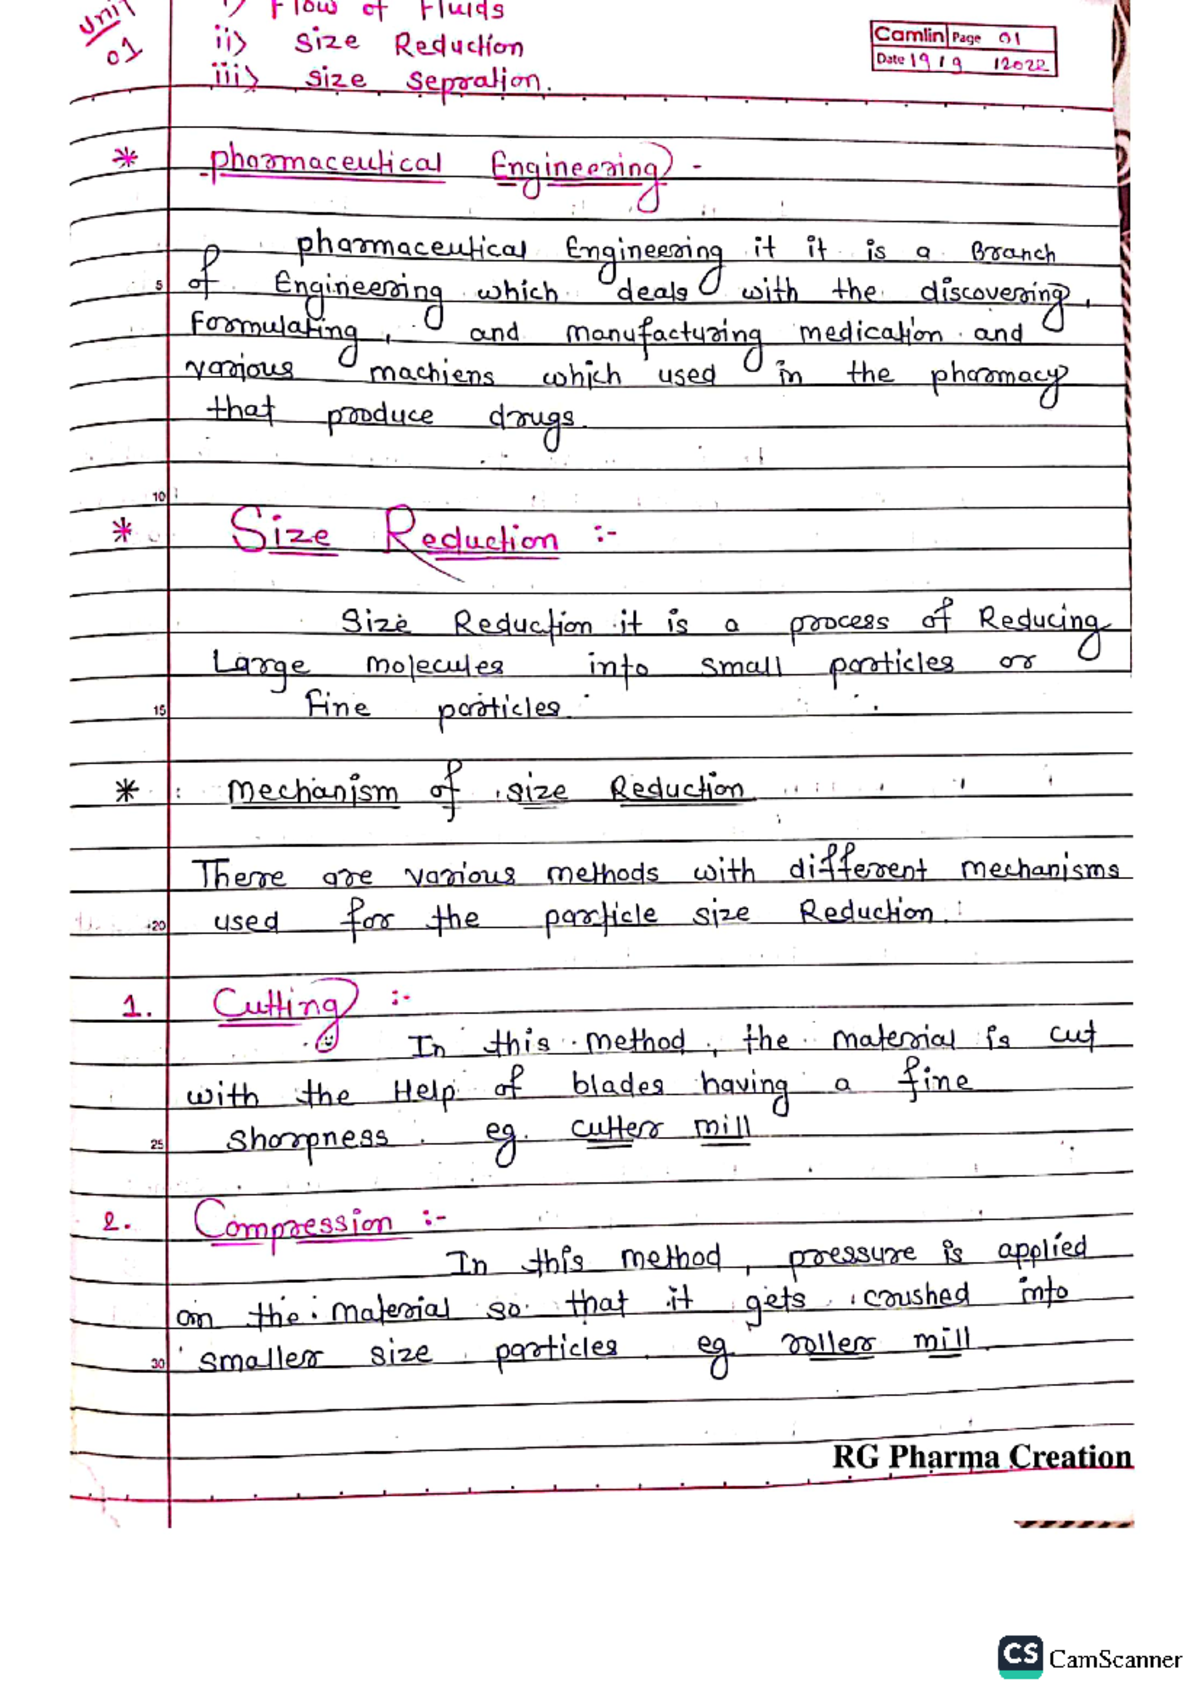 Unit 01
i) Flow of Fluids
ii) Size Reduction
iii) size sepration.
Camlin Page 01
Date 19/9/2022
* pharmaceutical Engineering -
pharmaceutical Engineering it it is a Branch
5 of Engineering which deals with the discovering,
Formulating, and manufacturing medication and
various machiens which used in the pharmacy
that produce drugs.
10
* Size Reduction :-
Size Reduction it is a process of Reducing
Large molecules into small particles or
15 fine particles.
* Mechanism of size Reduction
There are various methods with different mechanisms
20 used for the particle size Reduction.
1. Cutting :-
In this method, the material is cut
with the Help of blades having a fine
25 sharpness. eg. cutter mill
2. Compression :-
In this method, pressure is applied
on the material so that it gets crushed into
30 smaller size particles. eg. roller mill.
RG Pharma Creation
CS CamScanner